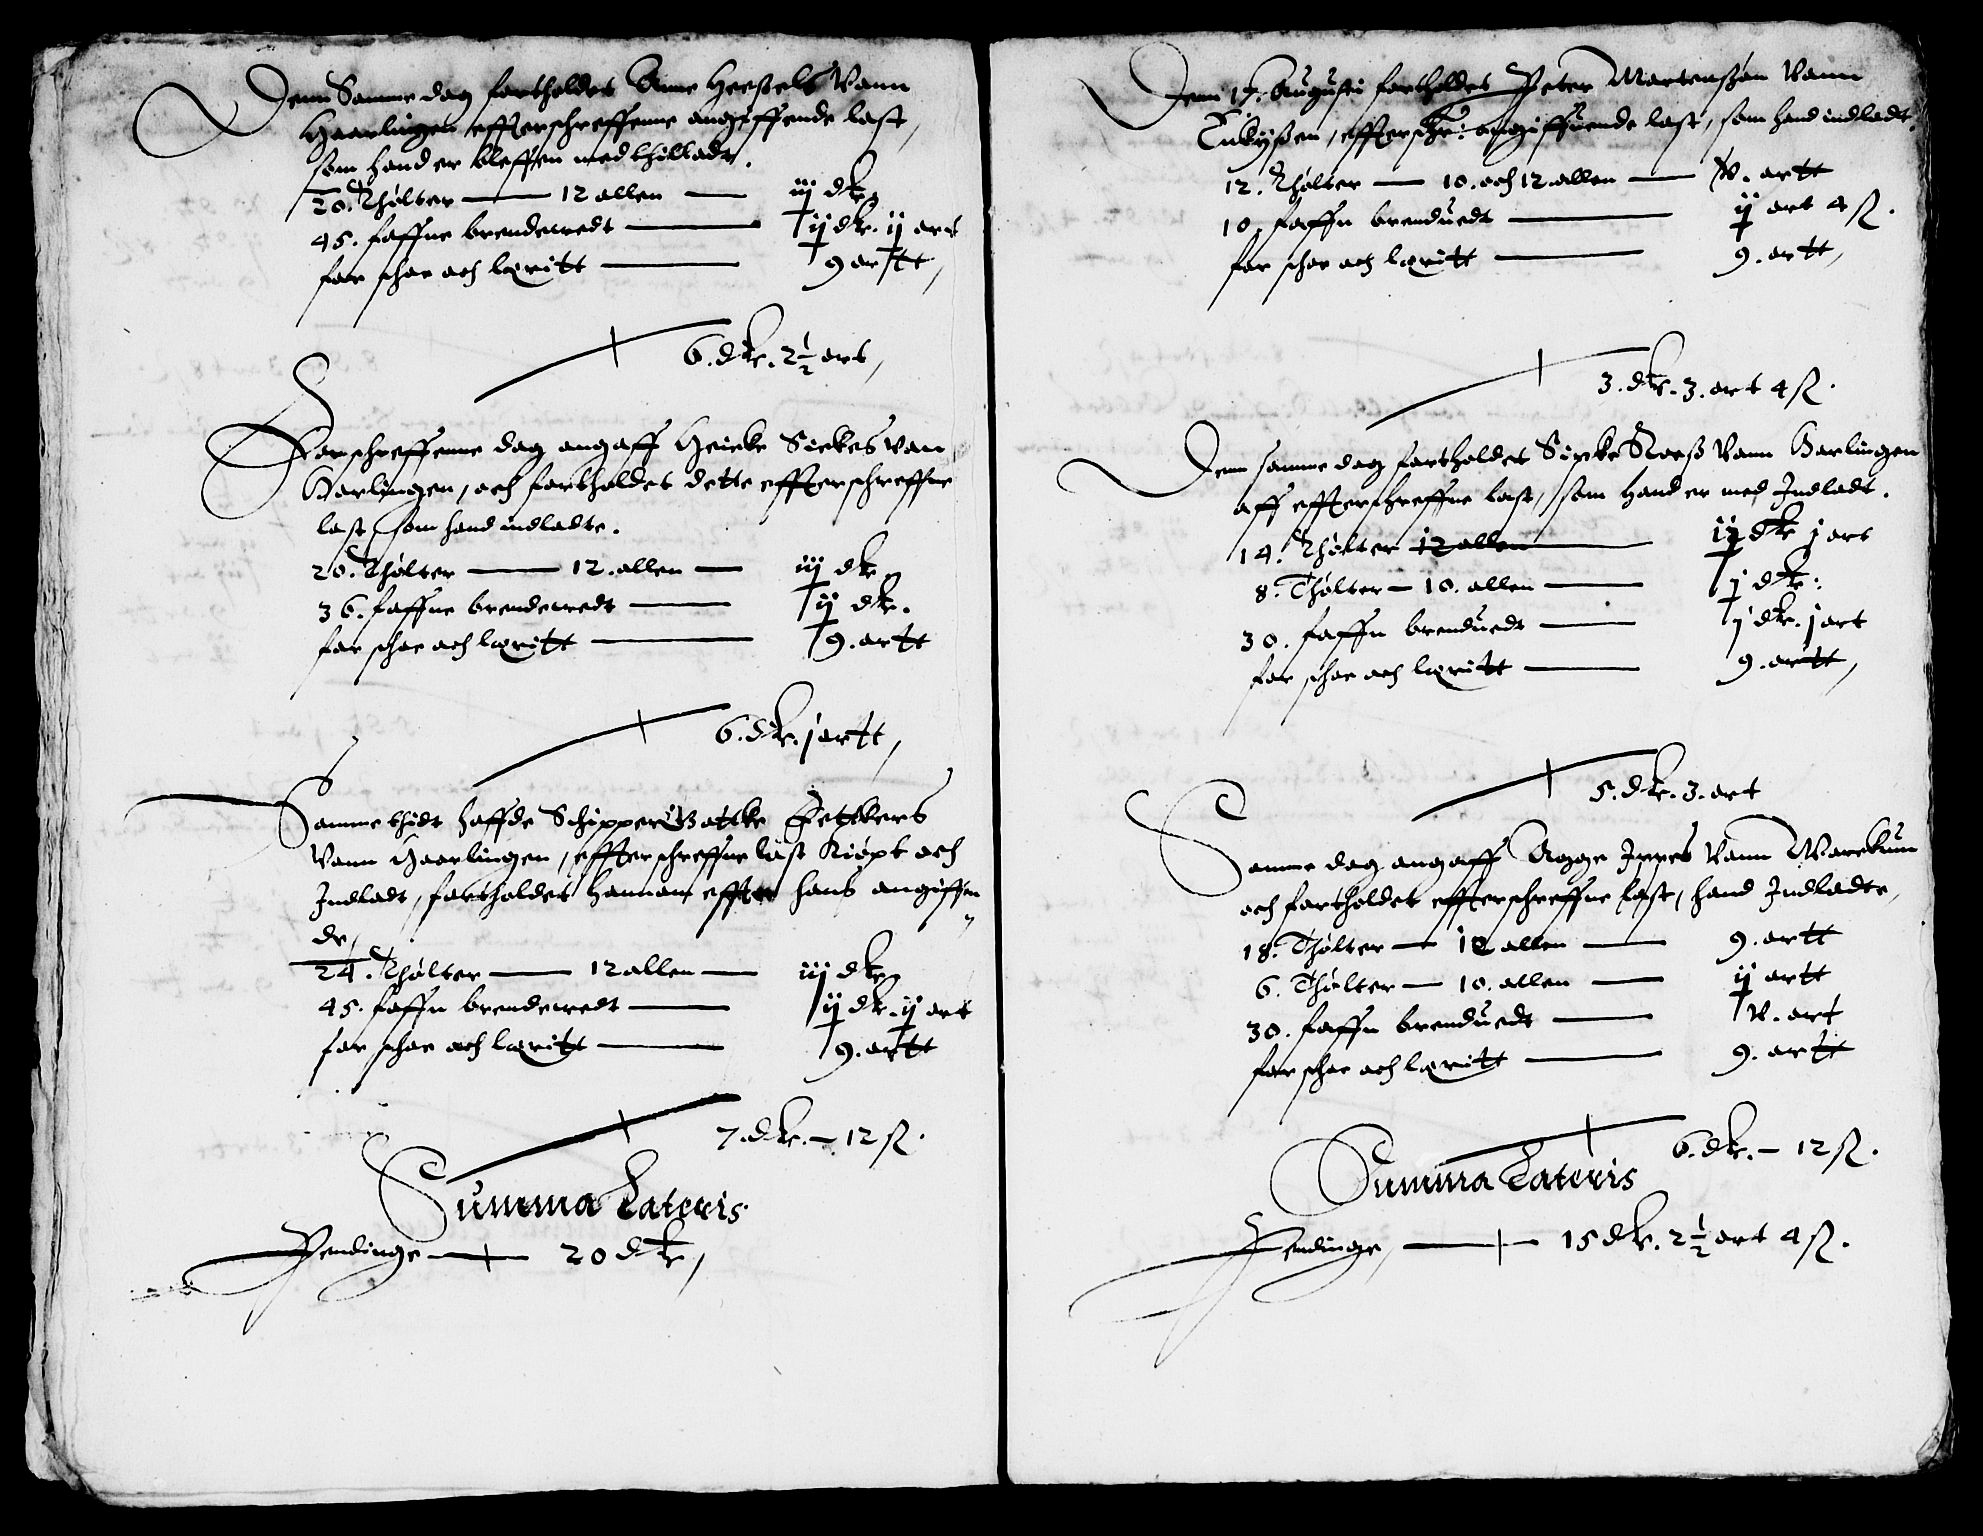 Denn Samme dag fortholdet Anne Heeßels Vann
Haarlingen, effterschreffenne angiffende last,
som hand er bleffen med thilladt.
20. Thølter — 12 allen — iij dlr
45. faffne brendewedt — ij dlr. ij ort
for schoe och løritt — 9 ortt,
6. dlr. 2½ ort,
Forschreffenne dag angaff Heicke Sickes van
Harlingen, och fortholdet dette effterschreffne
last, som hand indladte.
20. Thølter — 12. allen — iij dlr
36. faffne brendewedt — ij dlr.
for schoe och løritt — 9. ortt
6. dlr. j ortt,
Samme thidt haffde Schipper Wattke Fettkers
Vann Haarlingen, effterschreffne last Kiøpt och
Indladt, fortholdet hannom effter hans angiffen
de,
24. Thølter — 12 allen — iij dlr
45. faffn brendewedt — ij dlr. ij ort
for schoe och løritt — 9. ortt
7. dlr. — 12 ß.
Summa Lateris
Pendinge — 20 dlr,
Denn 17. Augusti fortholdet Peter Martenßøn Vann
effterschr: angiffuende last, som hand indladt.
12. Thølter — 10. och 12. allen — v. ortt
10. faffn brenduedt — ij ort 4 ß.
for schoe och løritt — 9. ortt,
3. dlr. 3. ort 4 ß.
Denn samme dag fortholdet Sipke Vann Harlingen
aff effterschreffne last, som hand er med Indladt.
14. Thølter 12 allen — ij dlr j ort
8. Thølter — 10. allen — j dlr:
30. faffn brenduedt — j dlr. j ort
for schoe och løritt — 9. ortt,
5. dlr. 3. ort
Samme dag angaff Agge Jppes Vann Warckum
och fortholdet effterschreffne last, hand Indladte,
18. Thølter — 12 allen — 9. ortt
6. Thølter — 10. allen — ij ortt
30. faffn brenduedt — v. ort
for schoe och løritt — 9. ortt
6. dlr. — 12 ß.
Summa Lateris
Pendinge, — 15 dlr. 2½ ort 4 ß.